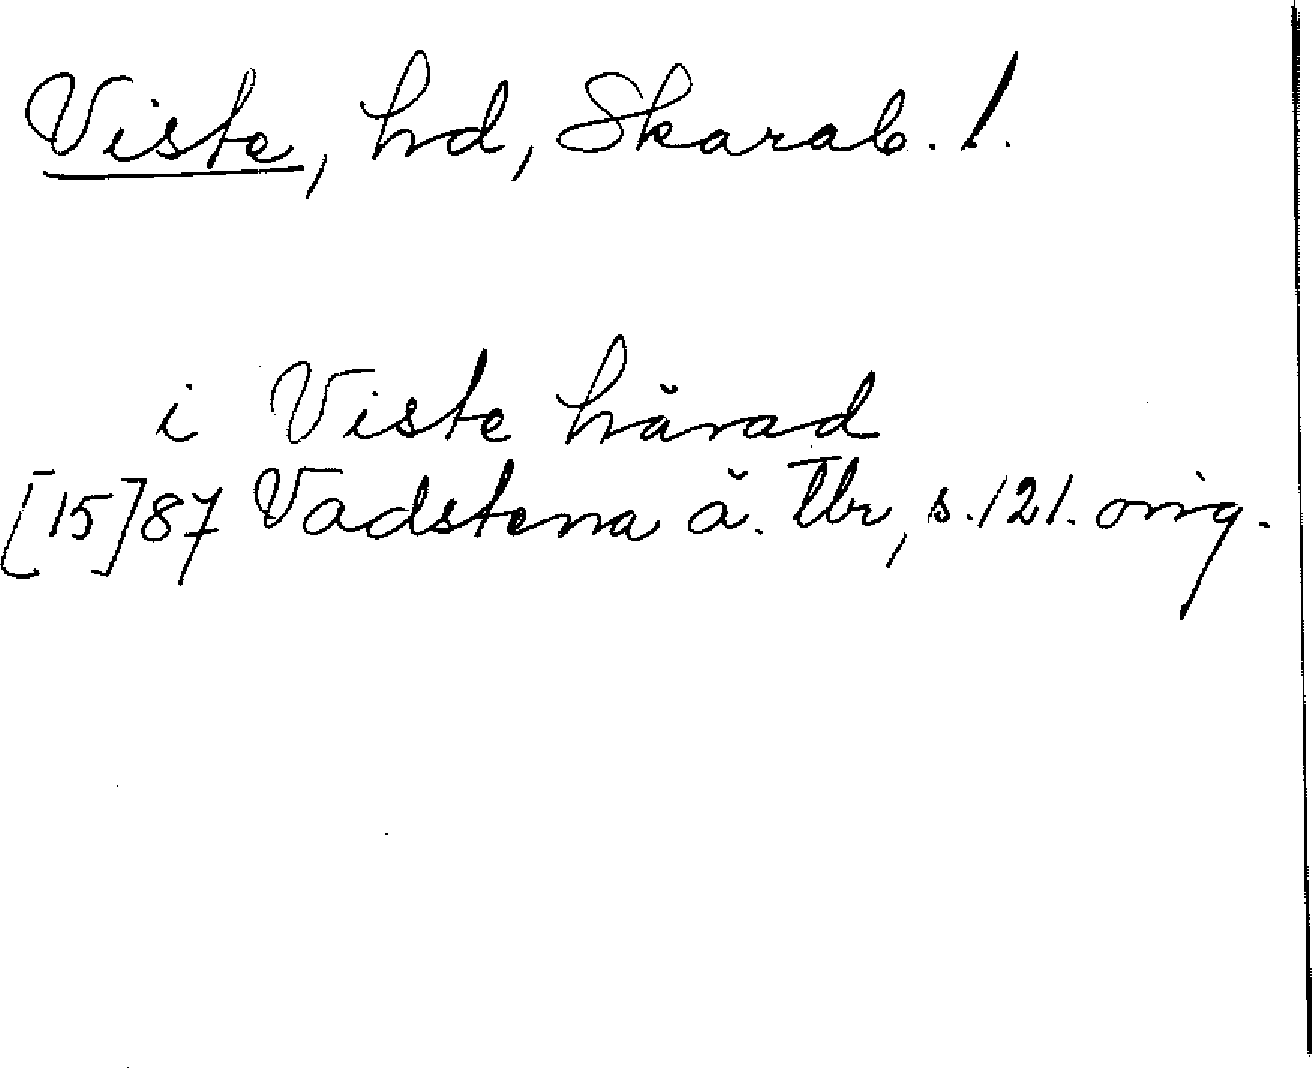 Viste, hd, Skarab. l.
i Viste härad
[15]87 Vadstena ä. Tbr, s. 121. orig.